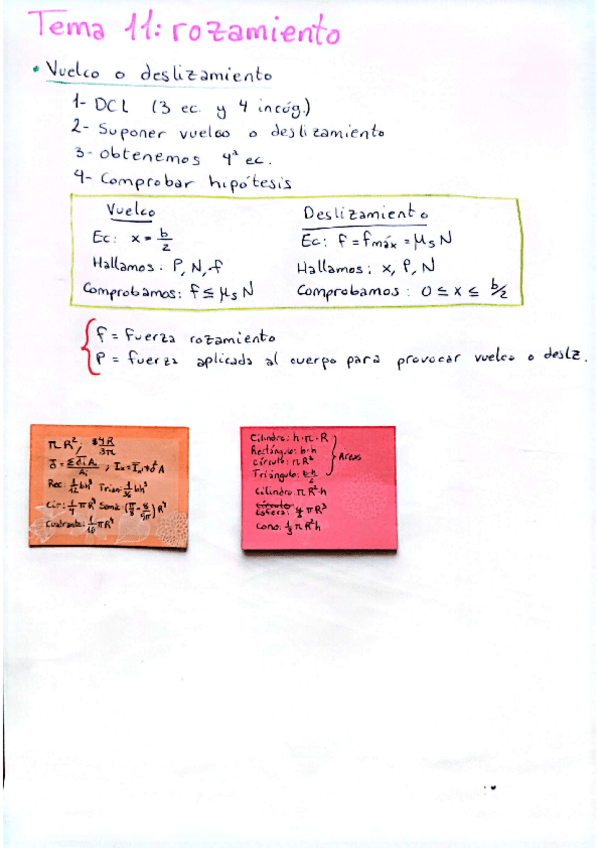 Tema 11: rozamiento
• Vuelco o deslizamiento
1- DCL (3 ec. y 4 incóg.)
2- Suponer vuelco o deslizamiento
3- Obtenemos 4ª ec.
4- Comprobar hipótesis
Vuelco
Ec: x = b/2
Hallamos: P, N, f
Comprobamos: f ≤ μs N
Deslizamiento
Ec: f = fmáx = μs N
Hallamos: x, P, N
Comprobamos: 0 ≤ x ≤ b/2
f = Fuerza rozamiento
P = fuerza aplicada al cuerpo para provocar vuelco o desliz.
π R²; 4R/3π
Rec: 1/12 bh³ Trian: 1/36 bh³
Cir: 1/4 π R⁴ Semic: (π/8 - 8/9π) R⁴
Cuadrante: 1/16 π R⁴
Cilindro: h·π·R
Rectángulo: b·h
Círculo: π R²
Triángulo: b·h/2
Áreas
Cilindro: π R² h
Esfera: π R³
Cono: 1/3 π R² h